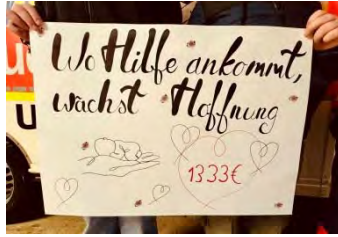 Wo Hilfe ankommt,
wächst Hoffnung
1333€